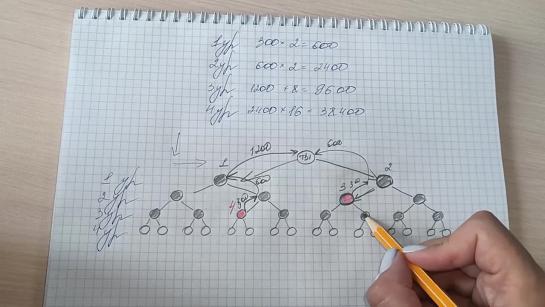 1 ур 300 × 2 = 600
2 ур 600 × 2 = 2400
3 ур 1200 × 8 = 9600
4 ур 2400 × 16 = 38400
1200
600
1
ТЫ
2
1 ур
600
3
300
2 ур
4
300
3 ур
4 ур